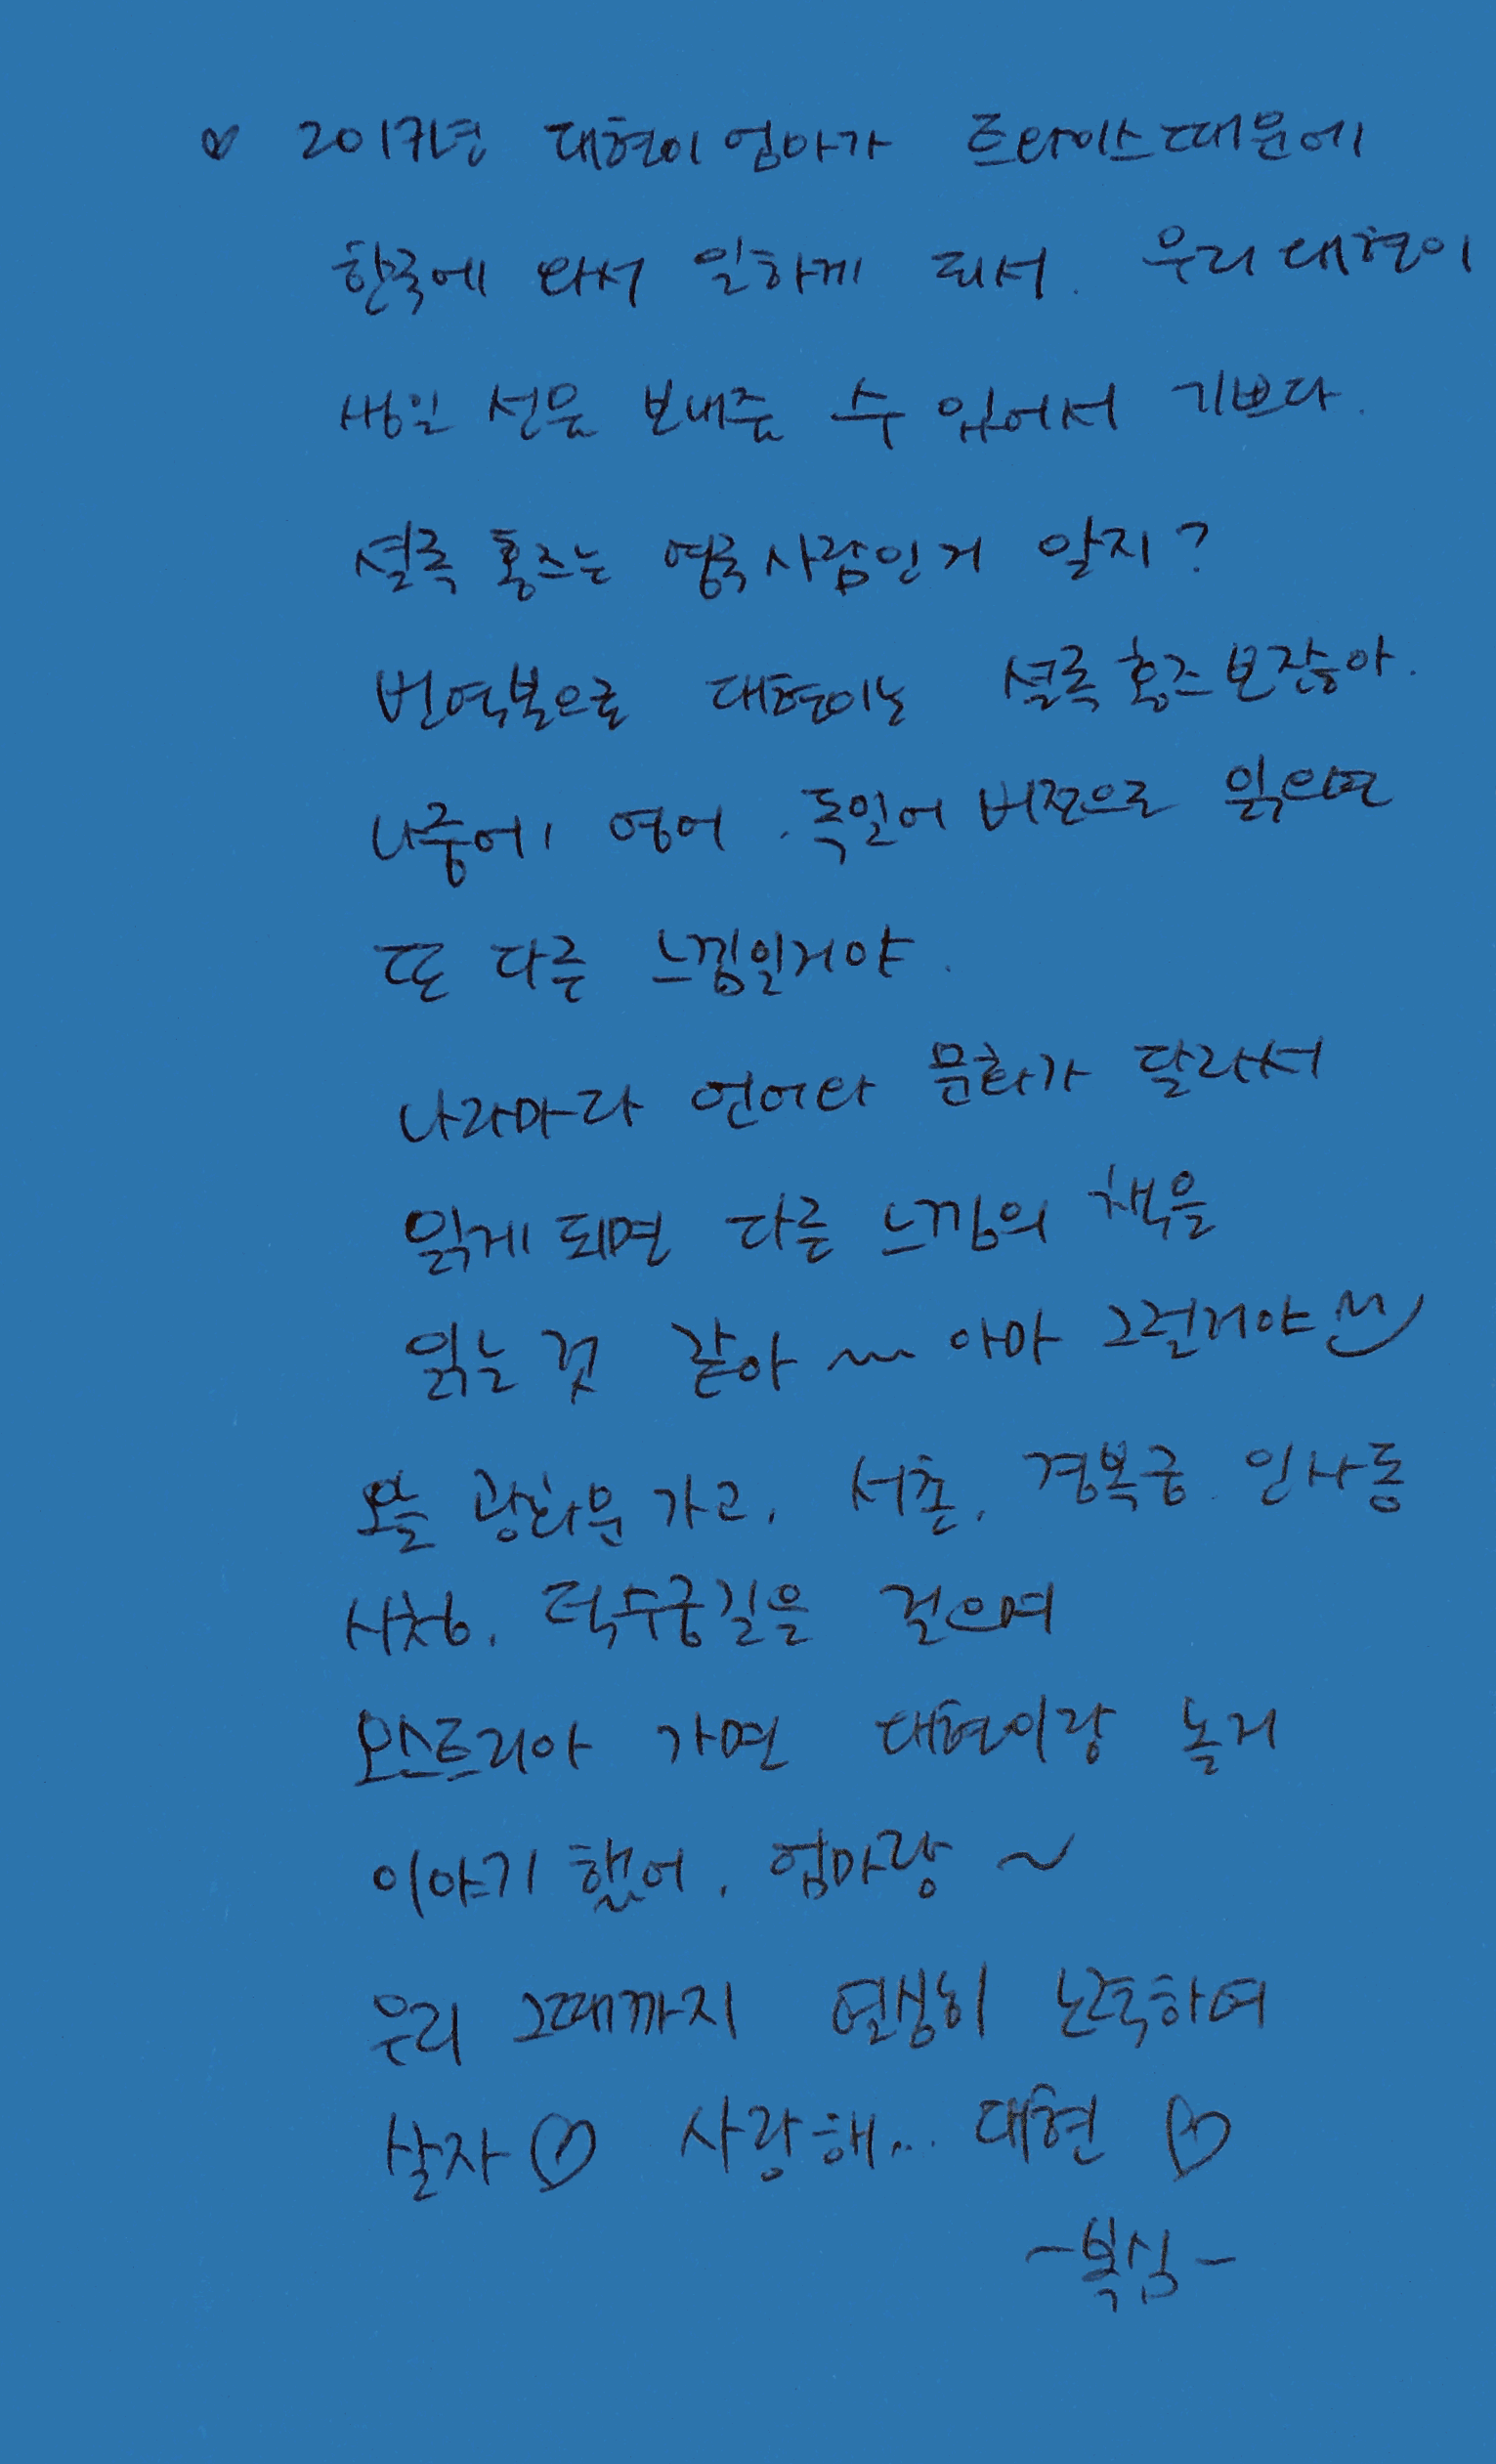 ♡ 2017년 대현이 엄마가 트라이스 때문에
한국에 와서 일하게 되서. 우리 대현이
생일 선물 보내줄 수 있어서 기쁘다.
셜록 홈즈는 영국 사람인거 알지?
번역본으로 대현이는 셜록 홈즈 보잖아.
나중에 영어, 독일어 버전으로 읽으면
또 다른 느낌일거야.
나라마다 언어와 문화가 달라서
읽게 되면 다른 느낌의 책을
읽는 것 같아 ~~ 아마 그럴거야 ^^
오늘 광화문 가고, 서촌, 경복궁, 인사동
시청, 덕수궁길을 걸으며
오스트리아 가면 대현이랑 놀거
이야기 했어, 엄마랑 ~
우리 그때까지 열심히 노력하며
살자 ♡ 사랑해... 대현 ♡
-복심-